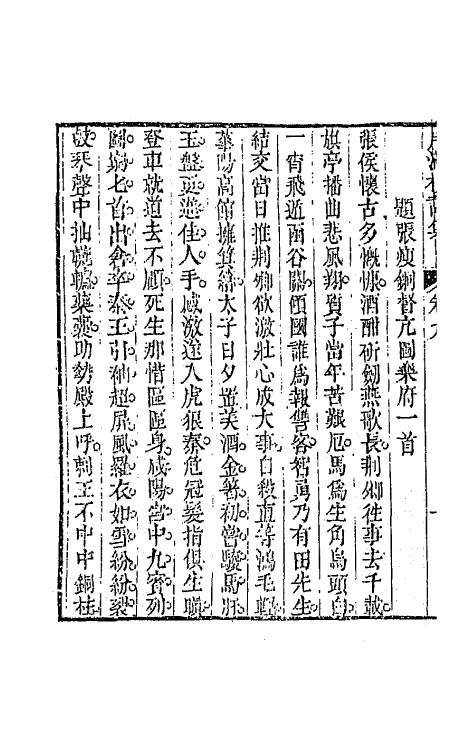 題張瘦銅督亢圖樂府一首
張侯懷古多慨慷。酒酣斫劒燕歌長。荆卿徃事去千載。
旗亭播曲悲風翔。質子當年苦艱厄。馬爲生角烏頭白。
一宵飛遁函谷關。傾國誰爲報讐客。智勇乃有田先生。
結交當日推荆卿。欲激壯心成大事。自殺直等鴻毛輕。
華陽高館擁箕篲。太子日夕置美酒。金箸初嘗駿馬肝。
玉盤更進佳人手。感激遂入虎狼秦。危冠髮指俱生瞋。
登車就道去不顧。死生那惜區區身。咸陽宮中九賓列。
圖窮匕首出倉卒。秦王引袖超屏風。羅衣如雪紛紛裂。
鼓琴聲中抽鹿盧。藥囊助勢殿上呼。刺王不中中銅柱。